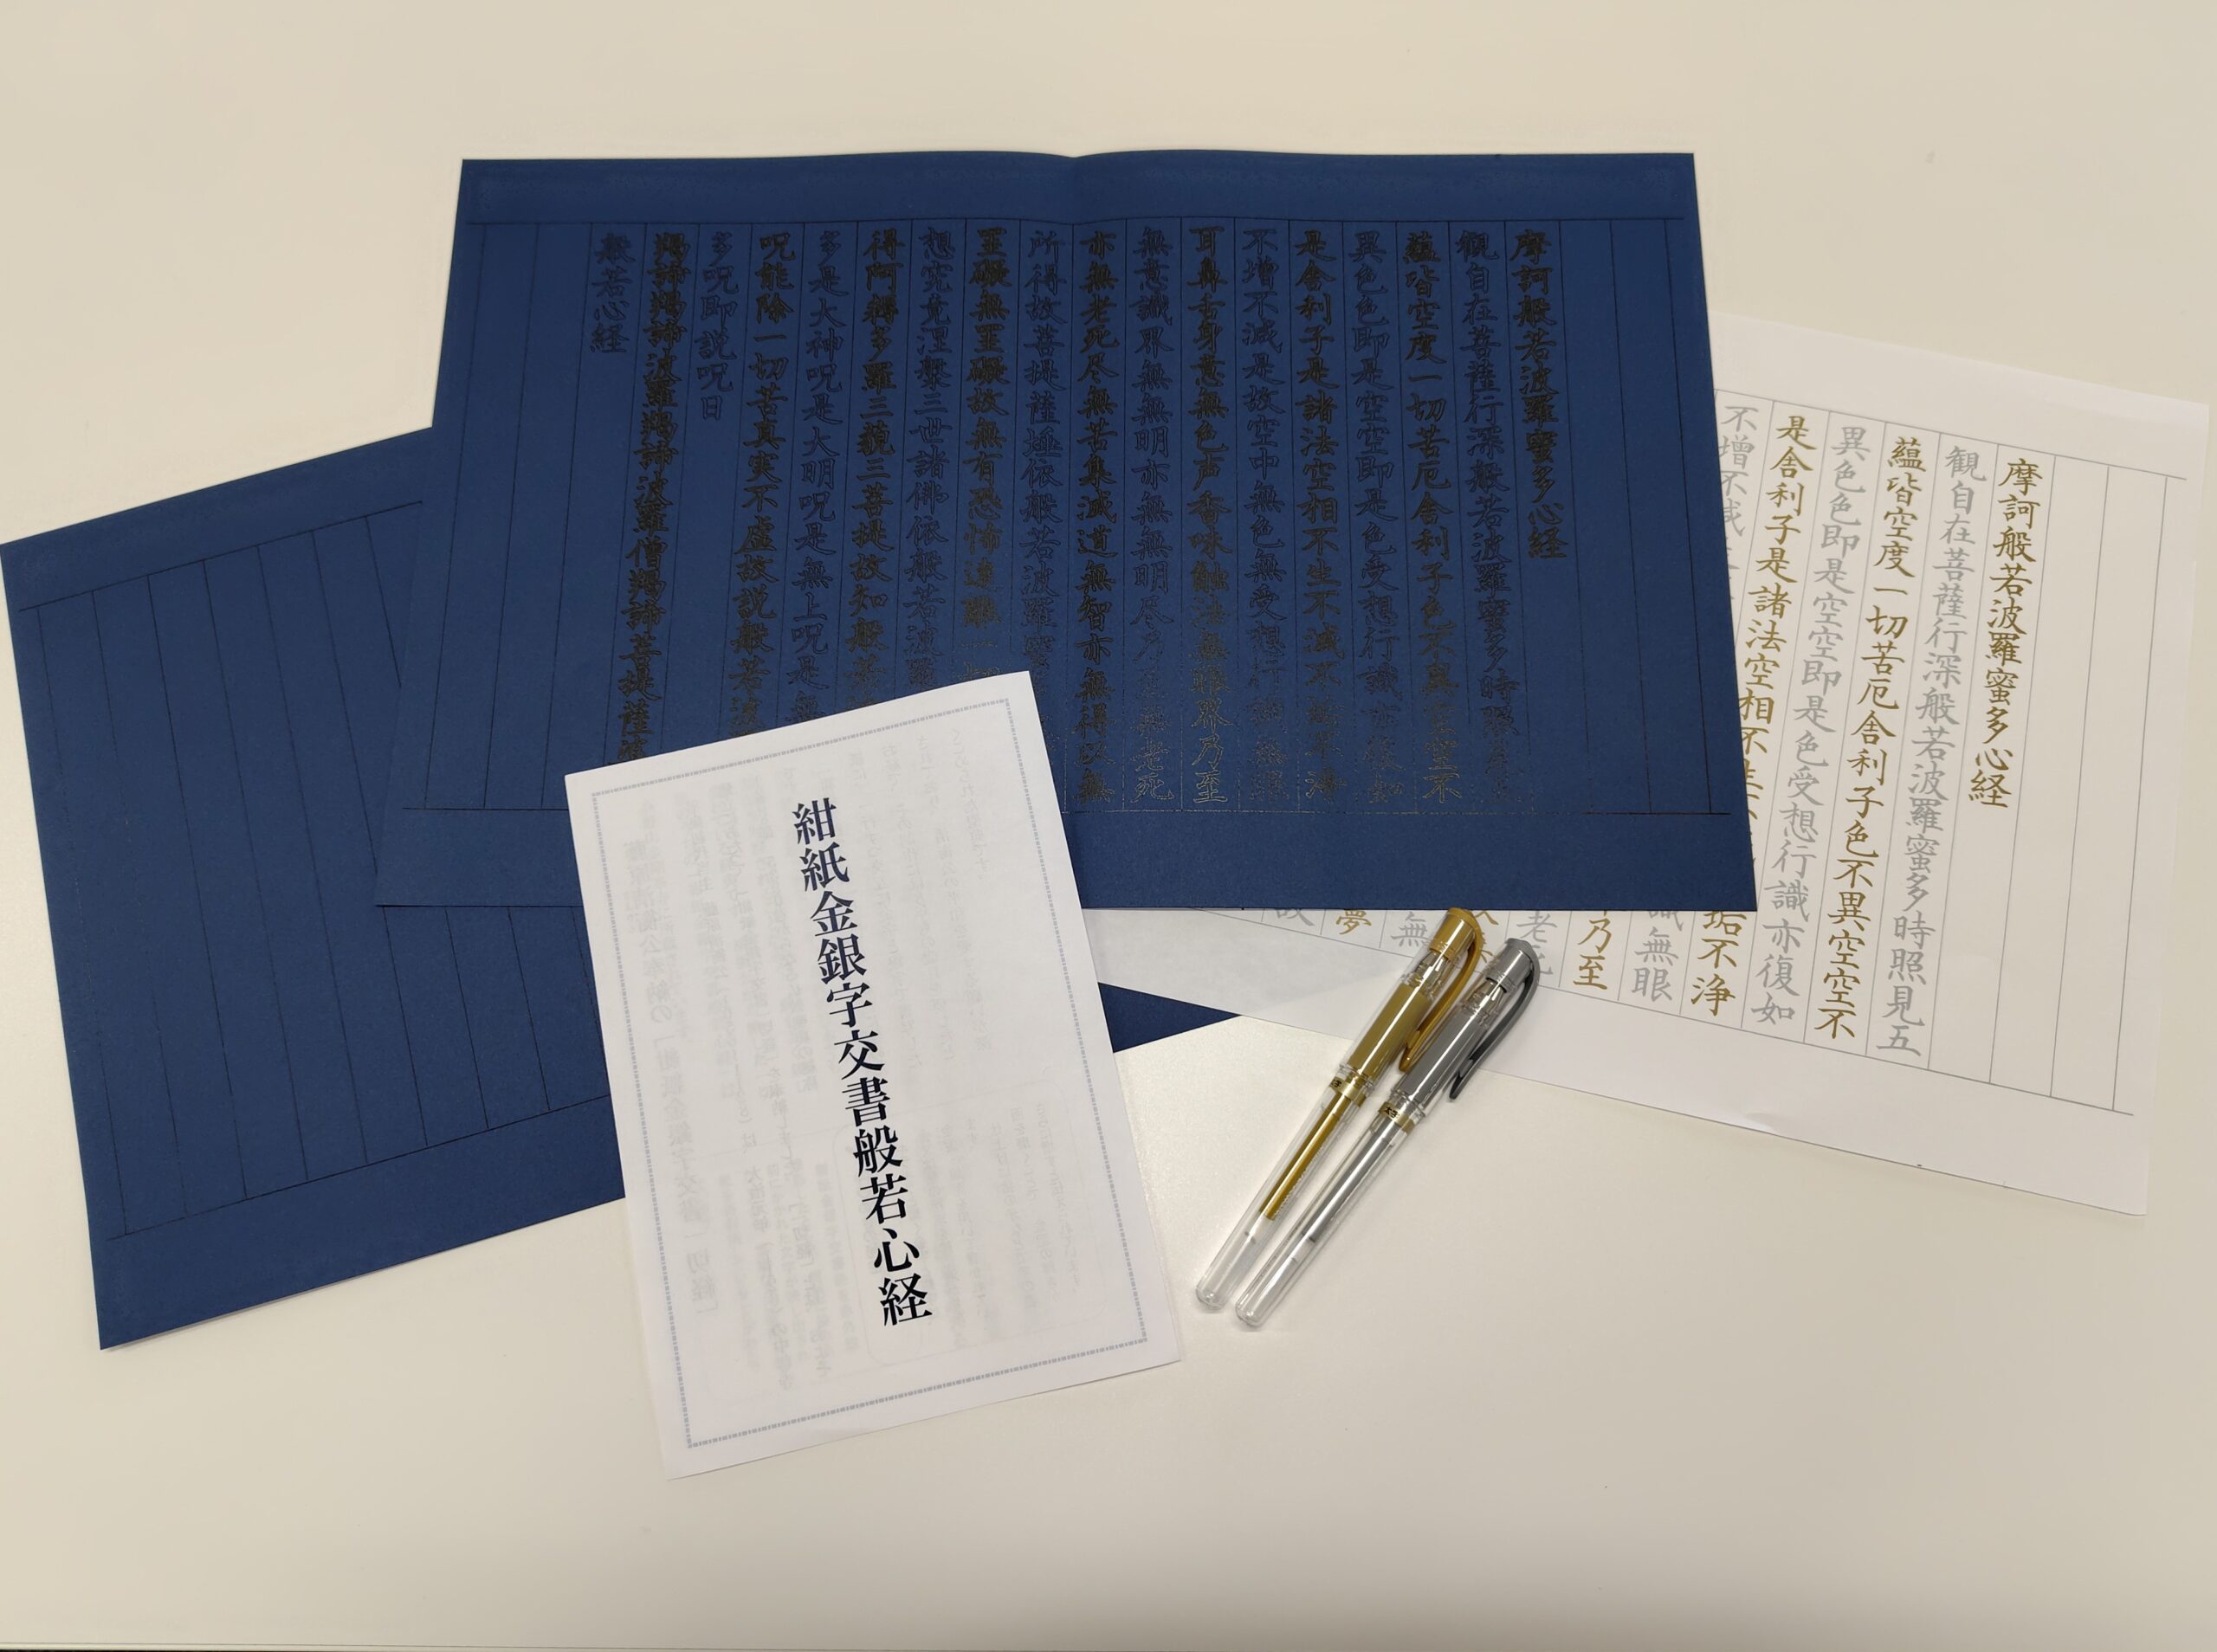 摩訶般若波羅蜜多心経
観自在菩薩行深般若波羅蜜多時照見五
蘊皆空度一切苦厄舎利子色不異空空不
異色色即是空空即是色受想行識亦復如
是舎利子是諸法空相不生不滅不垢不浄
不増不減是故空中無色無受想行識無眼
耳鼻舌身意無色声香味触法無眼界乃至
無意識界無無明亦無無明尽乃至無老死
亦無老死尽無苦集滅道無智亦無得以無
所得故菩提薩埵依般若波羅蜜
罣礙無罣礙故無有恐怖遠離一
想究竟涅槃三世諸佛依般若波羅
得阿耨多羅三藐三菩提故知般若
多是大神呪是大明呪是無上呪是無
呪能除一切苦真実不虚故説般若波
多呪即説呪曰
羯諦羯諦波羅羯諦波羅僧羯諦菩提薩
般若心経
摩訶般若波羅蜜多心経
観自在菩薩行深般若波羅蜜多時照見五
蘊皆空度一切苦厄舎利子色不異空空不
異色色即是空空即是色受想行識亦復如
是舎利子是諸法空相不生
垢不浄
不増不減
識無眼
乃至
老死
無
夢
故
紺紙金銀字交書般若心経